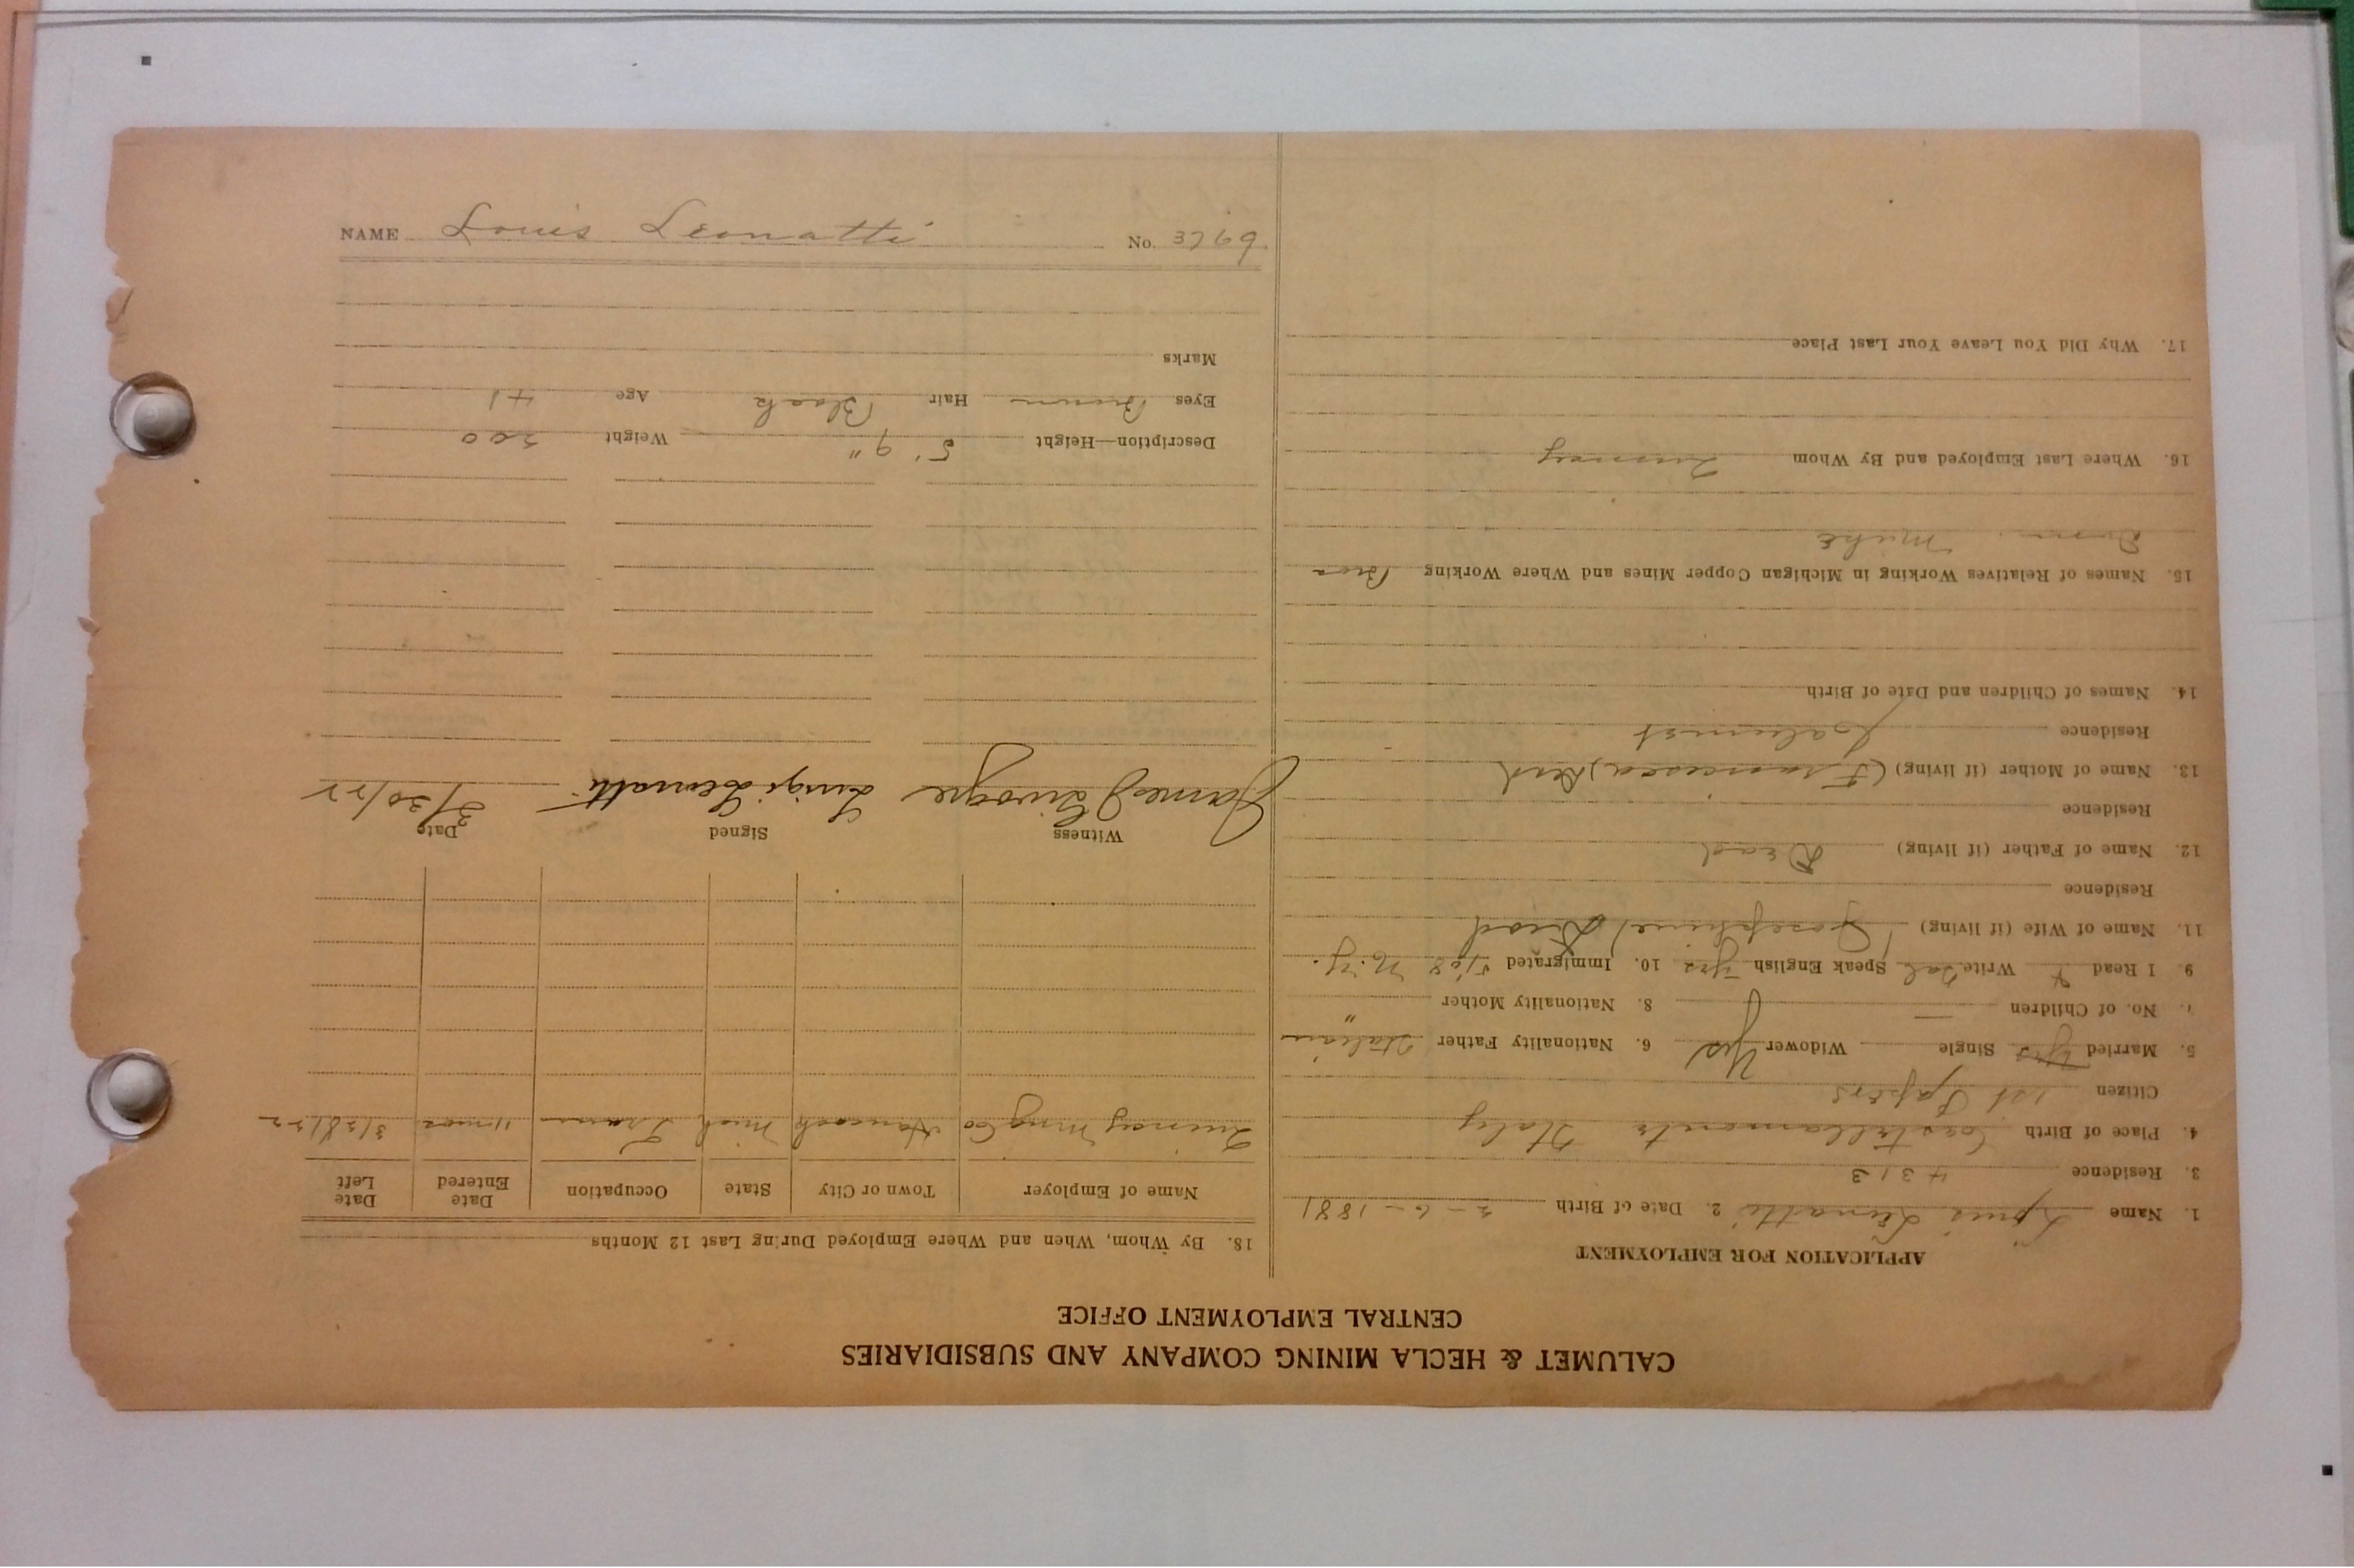 CALUMET & HECLA MINING COMPANY AND SUBSIDIARIES
CENTRAL EMPLOYMENT OFFICE
APPLICATION FOR EMPLOYMENT
1. Name Louis Leonatti 2. Date of Birth 2-6-1881
3. Residence 4313
4. Place of Birth Castellamonte Italy
Citizen 1st Papers
5. Married Yes Single Widower Yes 6. Nationality Father Italian
7. No. of Children — 8. Nationality Mother "
9. I Read & Write Speak English Yes 10. Immigrated N.Y.
11. Name of Wife (if living) (Josephine) Dead
Residence
12. Name of Father (if living) Dead
Residence
13. Name of Mother (if living) (Francesca) Dead
Residence Calumet
14. Names of Children and Date of Birth
15. Names of Relatives Working in Michigan Copper Mines and Where Working
Mike
16. Where Last Employed and By Whom Quincy
17. Why Did You Leave Your Last Place
18. By Whom, When and Where Employed During Last 12 Months
Name of Employer Town or City State Occupation Date Entered Date Left
Quincy Mng Co Hancock Mich Tram 11 mos 3/28/22
Witness Signed Date
James Luigi Leonatti 3/30/22
Description—Height 5' 9" Weight 200
Eyes Brown Hair Black Age 41
Marks
NAME Louis Leonatti No. 3769